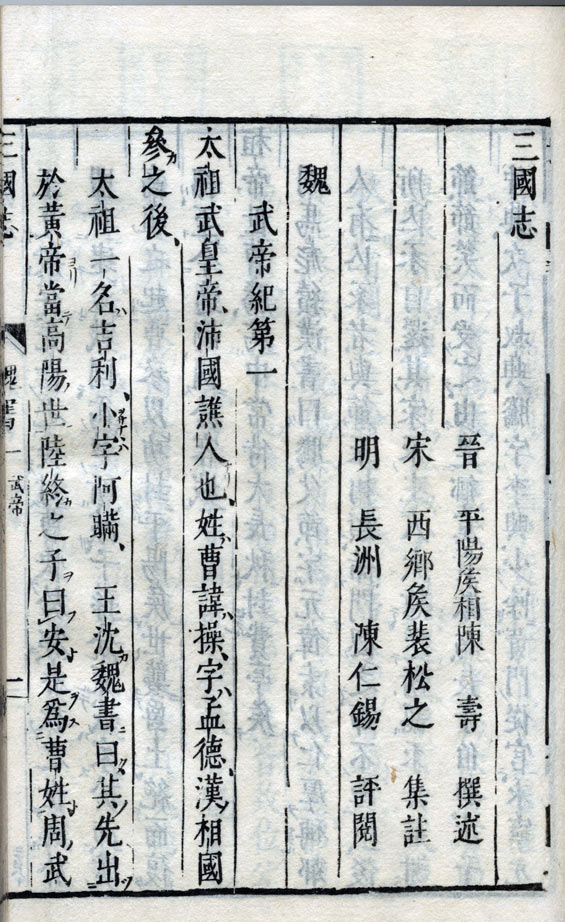 三國志
晉 平陽矦相陳 壽 撰述
宋 西鄉矦裴松之 集註
明 長洲 陳仁錫 評閱
魏
武帝紀第一
太祖武皇帝、沛國譙人也、姓曹、諱操、字孟德、漢相國
參之後、
太祖一名吉利、小字阿瞞、王沈魏書曰、其先出
於黃帝當高陽世陸終之子曰安是爲曹姓周武
三國志 魏書一 武帝 一